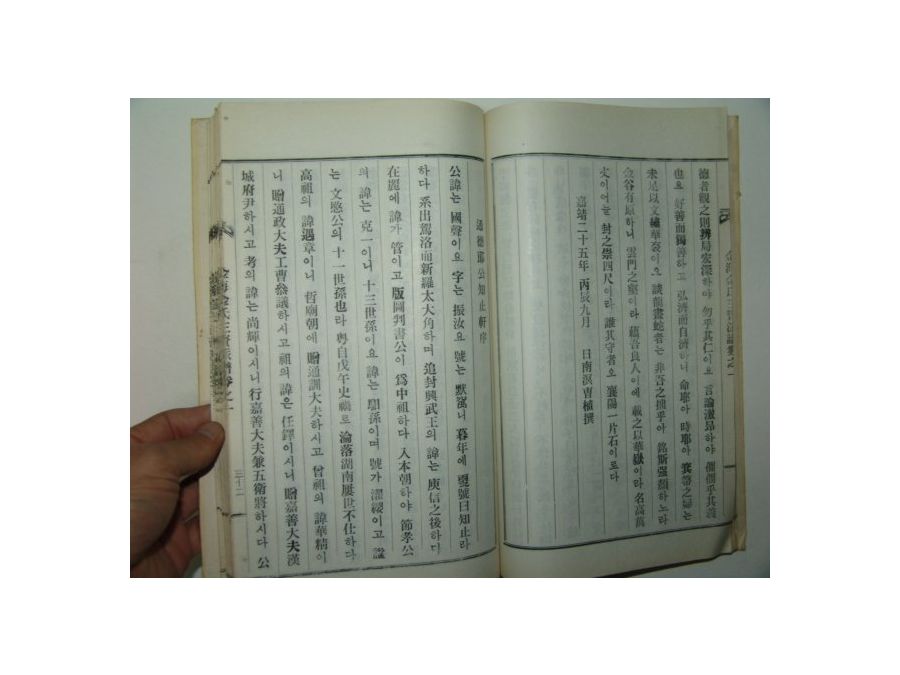 德者觀之則 局宏深하야 勿乎其仁이요 言論激昂하야 乎其義
也요 好善而獨善하고 弘濟而自濟하니 命耶아 時耶아 之歸는
未足以文 華衮이요 談龍畫蛇者는 非吾之 乎아 銘斯强顔하노라
金谷有原하니 雲門之 이라 吾良人이에 載之以華嶽이라 名高萬
丈이어늘 封之崇四尺이라 誰其守者오 襄陽一片石이로다
嘉靖二十五年 丙辰九月 日南溟曹植撰
通德郞公知止軒序
公諱는 國聲이요 字는 振汝요 號는 默窩니 暮年에 號曰知止라
하다 系出駕洛而新羅太大角하며 追封興武王의 諱는 庾信之後하다
在麗에 諱가 管이고 版圖判書公이 爲中祖하다 入本朝하야 節孝公
의 諱는 克一이니 十三世孫이요 諱는 馹孫이며 號가 濯纓이고 諡
는 文愍公의 十一世孫也라 粤自戊午史禍로 淪落湖南屢世不仕하다
高祖의 諱遇章이니 哲廟朝에 贈通訓大夫하시고 曾祖의 諱華精이
니 贈通政大夫工曹參議하시고 祖의 諱은 任鐸이시니 贈嘉善大夫漢
城府尹하시고 考의 諱는 尚輝이시니 行嘉善大夫兼五衛將하시다 公
三十二